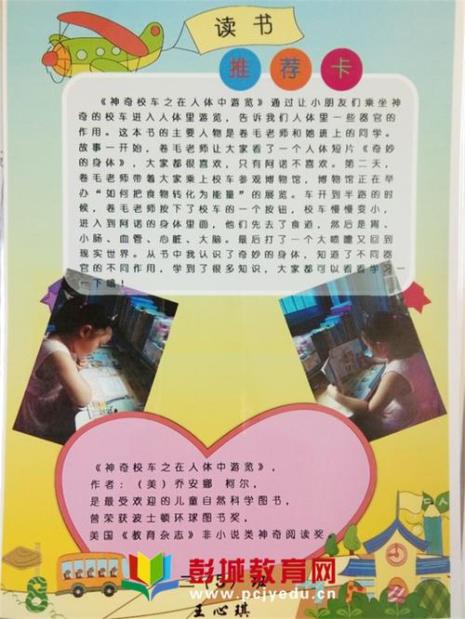 读书
推荐卡
《神奇校车之在人体中游览》通过让小朋友们乘坐神
奇的校车进入人体里游览，告诉我们人体里一些器官的
作用。这本书的主要人物是卷毛老师和她班上的同学。
故事一开始，卷毛老师让大家看了一个人体短片《奇妙
的身体》，大家都很喜欢，只有阿诺不喜欢。第二天，
卷毛老师带着大家乘上校车参观博物馆，博物馆正在举
办“如何把食物转化为能量”的展览。车开到半路的时
候，卷毛老师按下了校车的一个按钮，校车慢慢变小，
进入到阿诺的身体里面，他们先去了食道，然后是胃、
小肠、血管、心脏、大脑。最后打了一个大喷嚏又回到
现实世界。从书中我认识了奇妙的身体，知道了不同器
官的不同作用，学到了很多知识，大家都可以看看学习一
下哦！
《神奇校车之在人体中游览》，
作者：（美）乔安娜 柯尔，
是最受欢迎的儿童自然科学图书，
曾荣获波士顿环球图书奖，
美国《教育杂志》非小说类神奇阅读奖。
彭城教育网
www.pcjyedu.cn
班
王心琪